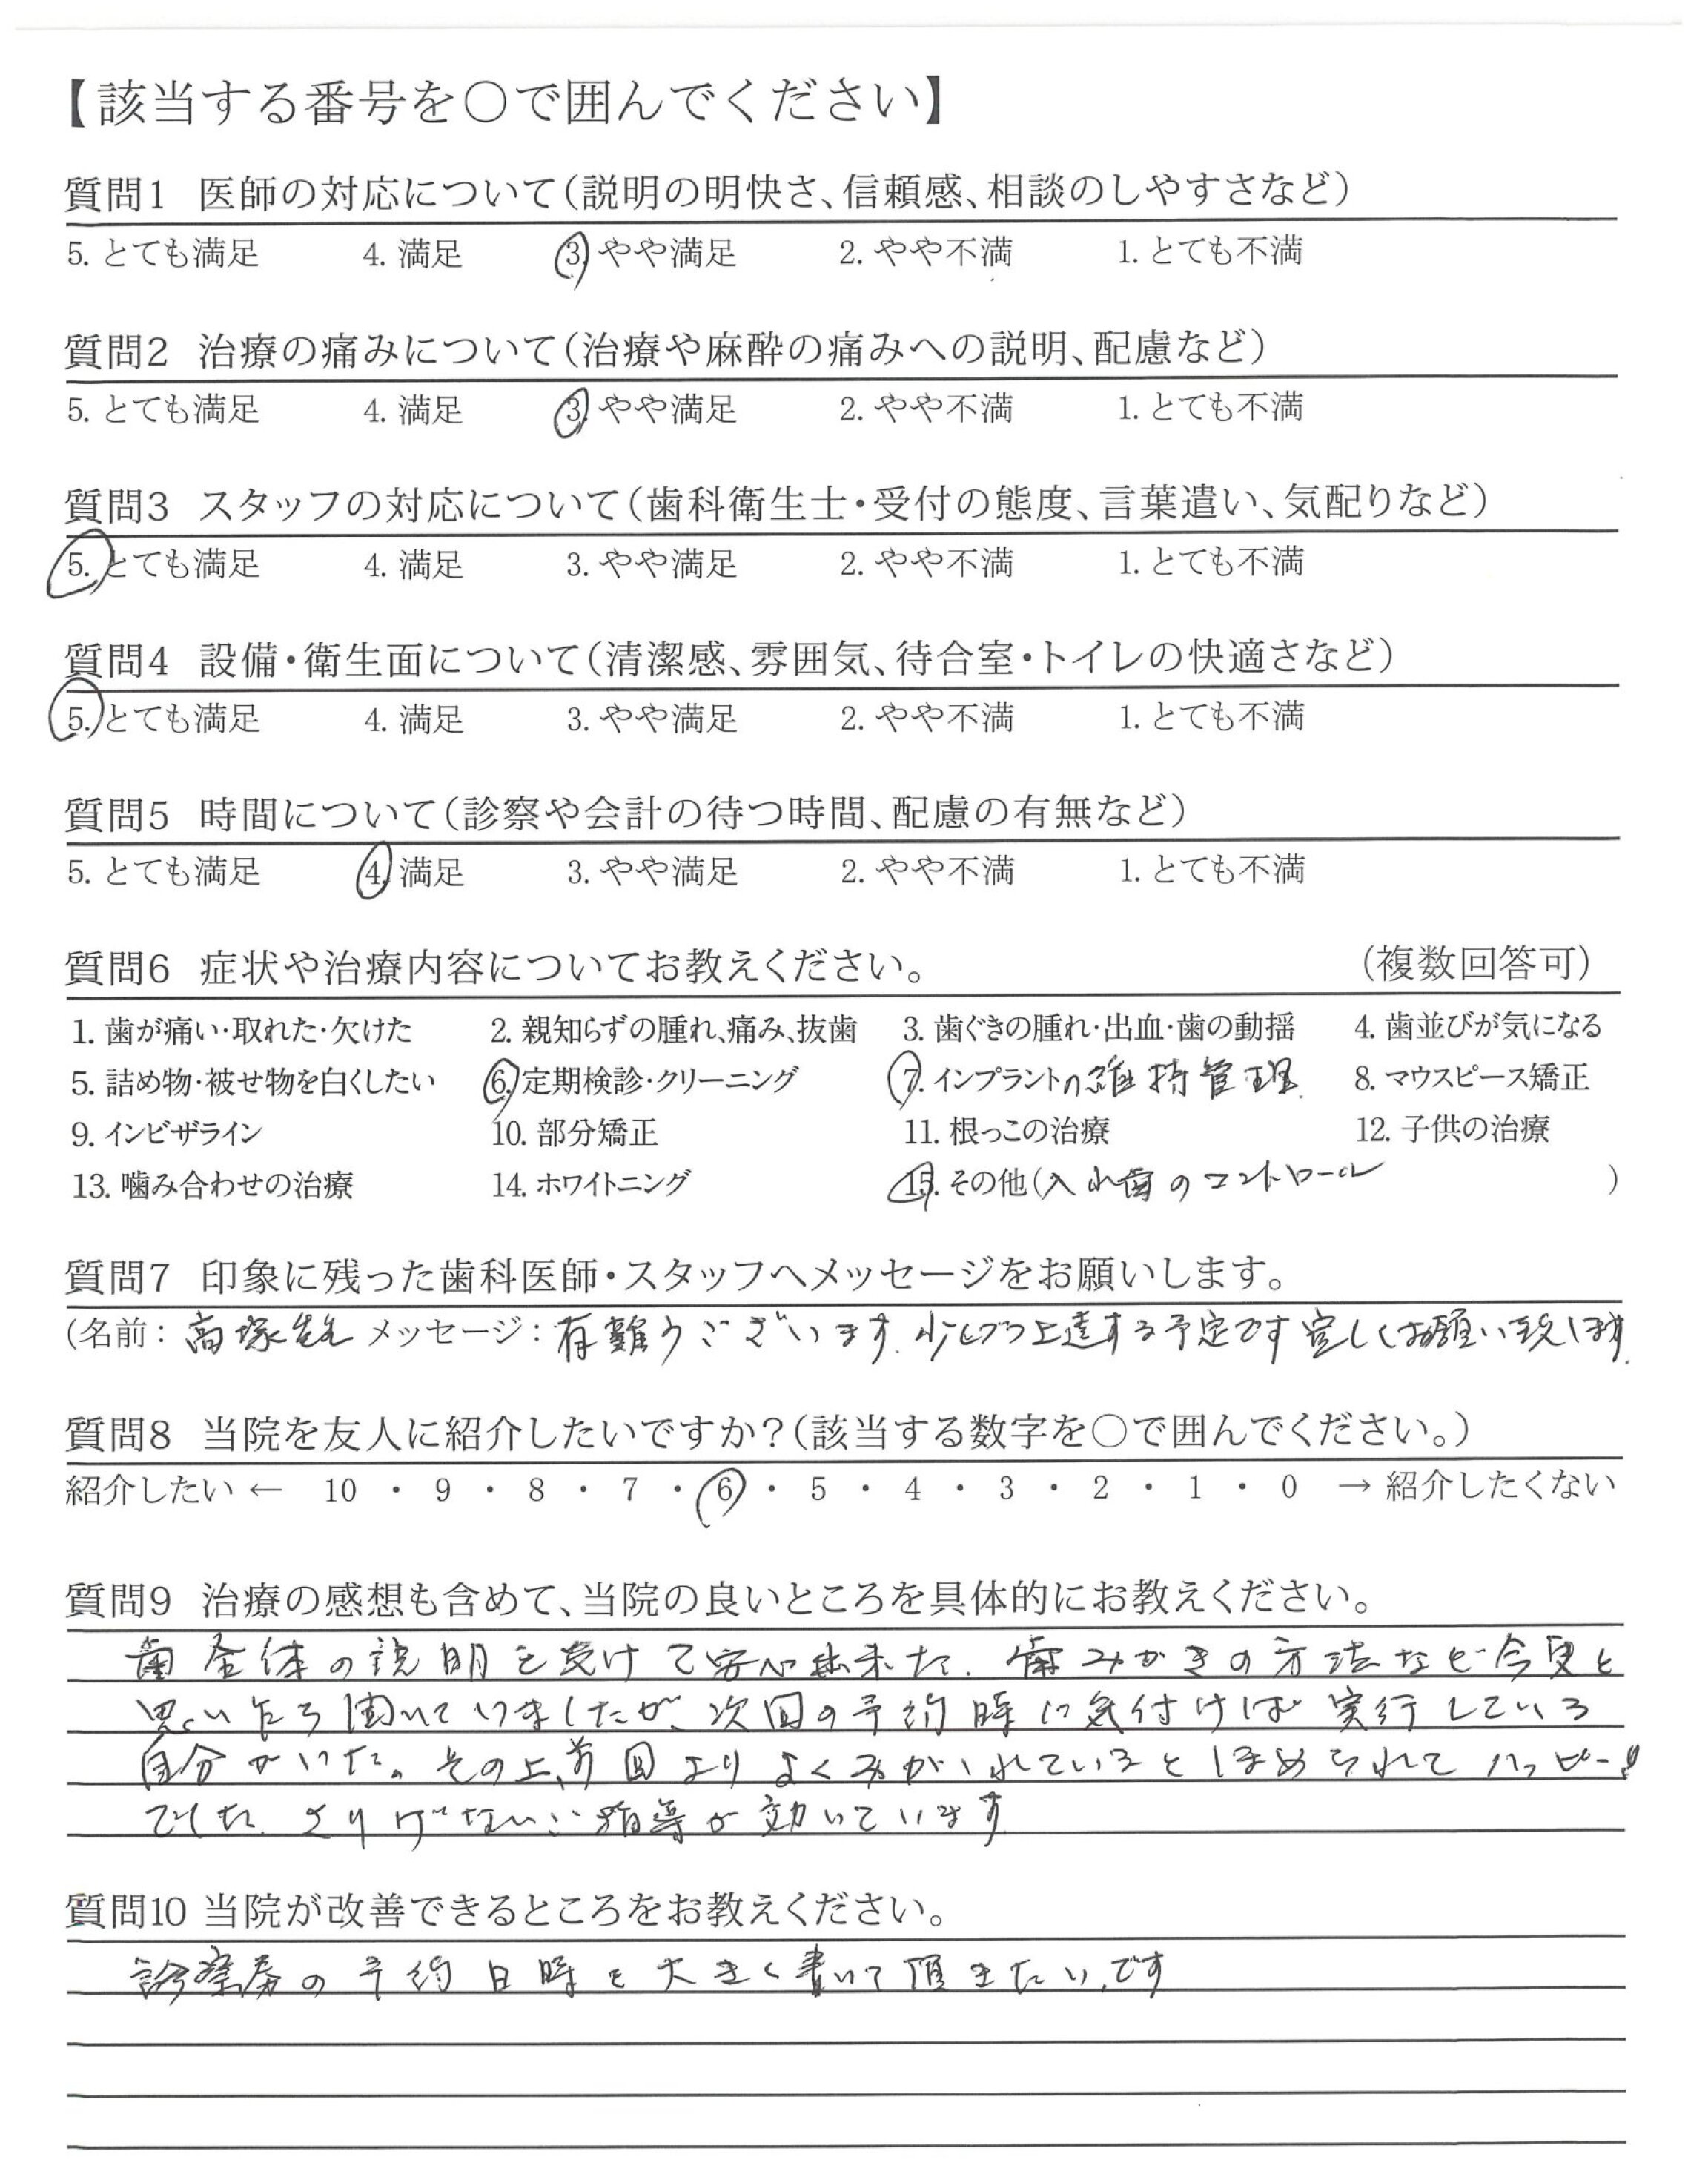 【該当する番号を○で囲んでください】
質問1 医師の対応について(説明の明快さ、信頼感、相談のしやすさなど)
5. とても満足 4. 満足 3. やや満足 2. やや不満 1. とても不満
質問2 治療の痛みについて(治療や麻酔の痛みへの説明、配慮など)
5. とても満足 4. 満足 3. やや満足 2. やや不満 1. とても不満
質問3 スタッフの対応について(歯科衛生士・受付の態度、言葉遣い、気配りなど)
5. とても満足 4. 満足 3. やや満足 2. やや不満 1. とても不満
質問4 設備・衛生面について(清潔感、雰囲気、待合室・トイレの快適さなど)
5. とても満足 4. 満足 3. やや満足 2. やや不満 1. とても不満
質問5 時間について(診察や会計の待つ時間、配慮の有無など)
5. とても満足 4. 満足 3. やや満足 2. やや不満 1. とても不満
質問6 症状や治療内容についてお教えください。 (複数回答可)
1. 歯が痛い・取れた・欠けた 2. 親知らずの腫れ、痛み、抜歯 3. 歯ぐきの腫れ・出血・歯の動揺 4. 歯並びが気になる
5. 詰め物・被せ物を白くしたい 6. 定期検診・クリーニング 7. インプラントの維持管理. 8. マウスピース矯正
9. インビザライン 10. 部分矯正 11. 根っこの治療 12. 子供の治療
13. 噛み合わせの治療 14. ホワイトニング 15. その他(入れ歯のコントロール )
質問7 印象に残った歯科医師・スタッフへメッセージをお願いします。
(名前: 高塚先生 メッセージ: 有難うございます. 少しづつ上達する予定です 宜しくお願い致します.
質問8 当院を友人に紹介したいですか?(該当する数字を○で囲んでください。)
紹介したい ← 10 ・ 9 ・ 8 ・ 7 ・ 6 ・ 5 ・ 4 ・ 3 ・ 2 ・ 1 ・ 0 → 紹介したくない
質問9 治療の感想も含めて、当院の良いところを具体的にお教えください。
歯全体の説明を受けて安心出来た. 歯みかきの方法など今更と
思い乍ら聞いていましたが、次回の予約時に気付けば実行している
自分がいた。その上、前回よりよくみがかれているとほめられてハッピー!
でした. さりげないご指導が効いています
質問10 当院が改善できるところをお教えください。
診察券の予約日時を大きく書いて頂きたいです